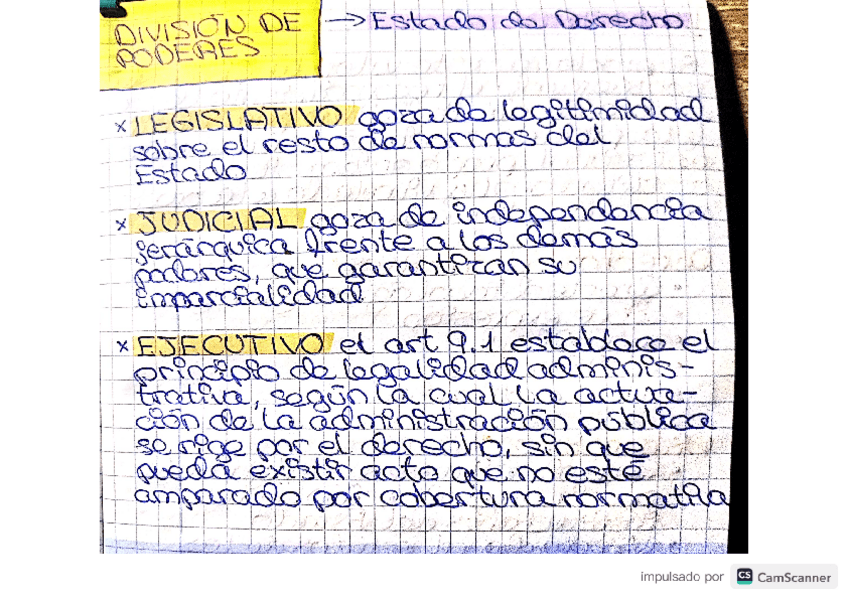 DIVISIÓN DE PODERES
→ Estado de Derecho
× LEGISLATIVO goza de legitimidad
sobre el resto de normas del
Estado
× JUDICIAL goza de independencia
jerárquica frente a los demás
poderes, que garantizan su
imparcialidad
× EJECUTIVO el art 9.1 establece el
principio de legalidad adminis-
trativa, según la cual la actua-
ción de la administración pública
se rige por el derecho, sin que
pueda existir acto que no esté
amparado por cobertura normativa
impulsado por CS CamScanner